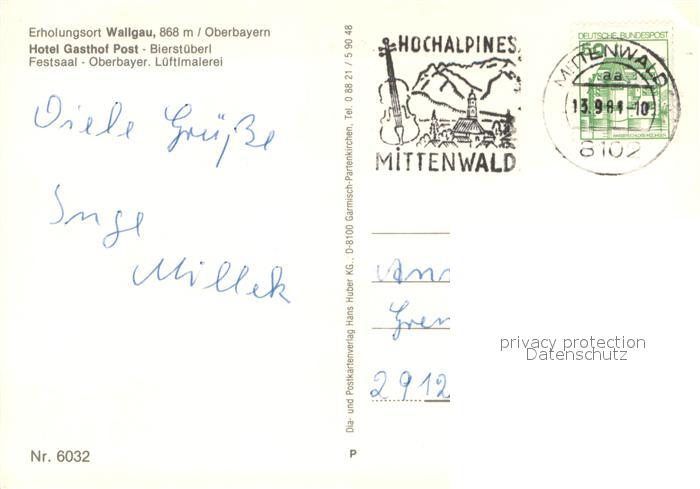 Erholungsort Wallgau, 868 m / Oberbayern
Hotel Gasthof Post - Bierstüberl
Festsaal - Oberbayer. Lüftlmalerei
Viele Grüße
Inge
Millek
Nr. 6032
Dia- und Postkartenverlag Hans Huber KG., D-8100 Garmisch-Partenkirchen, Tel. 0 88 21 / 5 90 48
P
HOCHALPINES
MITTENWALD
DEUTSCHE BUNDESPOST
50
MITTENWALD
aa
13.9.81-10
8102
Ann
Gren
2912
privacy protection
Datenschutz